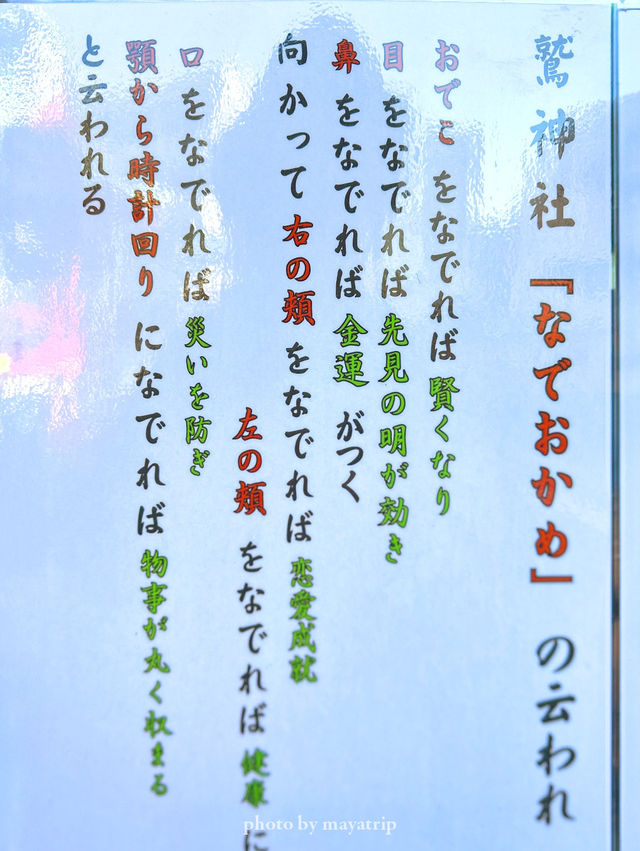 鷲神社『なでおかめ』の云われ
おでこをなでれば賢くなり
目をなでれば先見の明が効き
鼻をなでれば金運がつく
向かって右の頬をなでれば恋愛成就
左の頬をなでれば健康に
口をなでれば災いを防ぎ
顎から時計回りになでれば物事が丸く収まる
と云われる
photo by mayatrip